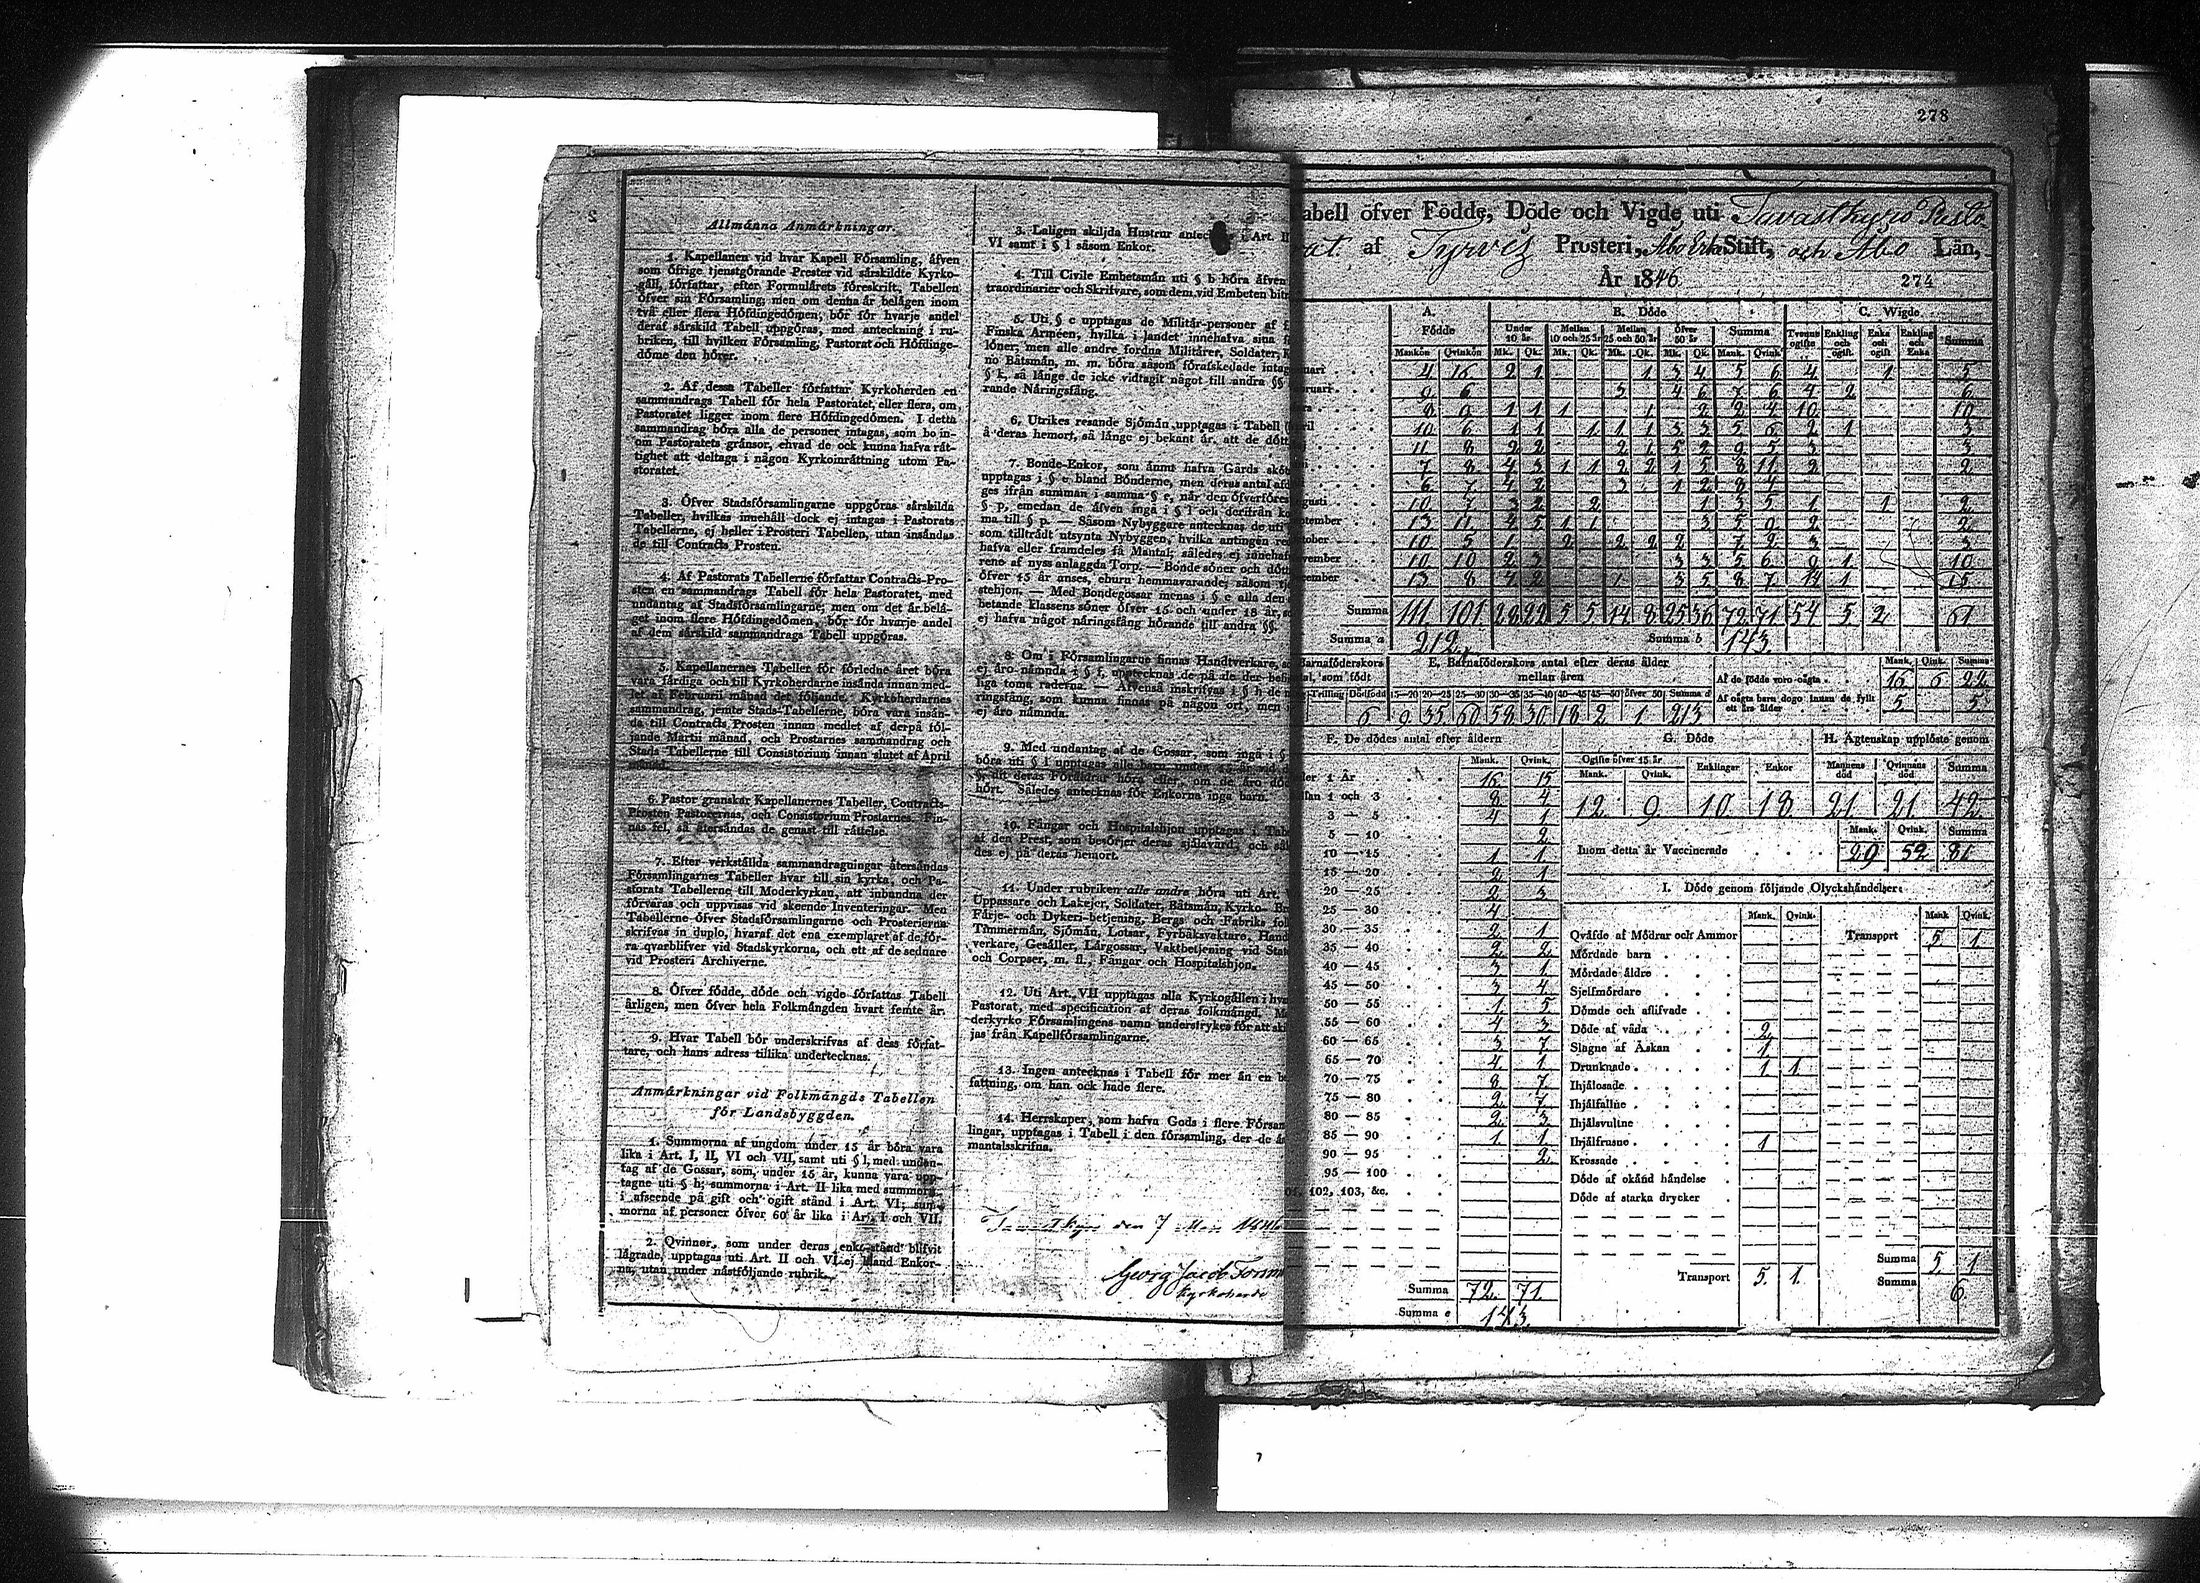 278
Allmänna Anmärkningar.
1. Kapellanen vid hvar Kapell Församling, äfven
som öfrige tjenstgörande Prester vid särskildte Kyrko-
gäll, författar, efter Formulärets föreskrift, Tabellen
öfver sin Församling; men om denna är belägen inom
två eller flera Höfdingedömen, bör för hvarje andel
deraf särskild Tabell uppgöras, med anteckning i ru-
briken, till hvilken Församling, Pastorat och Höfdinge-
döme den hörer.
2. Af dessa Tabeller författar Kyrkoherden en
sammandrags Tabell för hela Pastoratet, eller flera, om
Pastoratet ligger inom flere Höfdingedömen. I detta
sammandrag böra alla de personer intagas, som bo in-
om Pastoratets gränsor, ehvad de ock kunna hafva rät-
tighet att deltaga i någon Kyrkoinrättning utom Pa-
storatet.
3. Öfver Stadsförsamlingarne uppgöras särskilda
Tabeller, hvilkas innehåll dock ej intagas i Pastorats
Tabellerne, ej heller i Prosteri Tabellen, utan insändas
de till Contracts Prosten.
4. Af Pastorats Tabellerne författar Contracts-Pro-
sten en sammandrags Tabell för hela Pastoratet, med
undantag af Stadsförsamlingarne; men om det är belä-
get inom flere Höfdingedömen, bör för hvarje andel
af dem särskild sammandrags Tabell uppgöras.
5. Kapellanernes Tabeller för förledne året böra
vara färdiga och till Kyrkoherdarne insända innan med-
let af Februarii månad det följande, Kyrkoherdarnes
sammandrag, jemte Stads-Tabellerne, böra vara insän-
da till Contracts Prosten innan medlet af derpå föl-
jande Martii månad, och Prostarnes sammandrag och
Stads Tabellerne till Consistorium innan slutet af April
månad.
6. Pastor granskar Kapellanernes Tabeller, Contracts-
Prosten Pastorernas, och Consistorium Prostarnes. Fin-
nas fel, så återsändas de genast till rättelse.
7. Efter verkställda sammandragningar återsändas
Församlingarnes Tabeller hvar till sin kyrka, och Pa-
storats Tabellerne till Moderkyrkan, att inbundna der
förvaras och uppvisas vid skeende Inventeringar. Men
Tabellerne öfver Stadsförsamlingarne och Prosterierna
skrifvas in duplo, hvaraf det ena exemplaret af de för-
ra qvarblifver vid Stadskyrkorna, och ett af de sednare
vid Prosteri Archiverne.
8. Öfver födde, döde och vigde författas Tabell
årligen, men öfver hela Folkmängden hvart femte år.
9. Hvar Tabell bör underskrifvas af dess förfat-
tare, och hans adress tillika undertecknas.
Anmärkningar vid Folkmängds Tabellen
för Landsbyggden.
1. Summorna af ungdom under 15 år böra vara
lika i Art. I, II, VI och VII, samt uti § l, med undan-
tag af de Gossar, som, under 15 år, kunna vara upp-
tagne uti § h; summorna i Art. II lika med summorna
i afseende på gift och ogift stånd i Art. VI; sum-
morna af personer öfver 60 år lika i Art. I och VII.
2. Qvinnor, som under deras enke-stånd blifvit
lägrade, upptagas uti Art. II och VI ej bland Enkor-
na, utan under nästföljande rubrik.
3. Laligen skiljda Hustrur Art. II
VI samt i § l såsom Enkor.
4. Till Civile Embetsmän uti § b böra äfven
traordinarier och Skrifvare, som dem vid Embeten
5. Uti § c upptagas de Militär-personer af
Finska Arméen, hvilka i landet innehafva sina
löner; men alle andre fordna Militärer, Soldater,
no Båtsmän, m. m. böra såsom förafskedade
§ k, så länge de icke vidtagit något till andra §§
rande Näringsfång.
6. Utrikes resande Sjömän upptagas i Tabell
å deras hemort, så länge ej bekant är, att de dött
7. Bonde-Enkor, som ännu hafva Gårds
upptagas i § e bland Bönderne, men deras antal
ges ifrån summan i samma § e, när den
§ p, emedan de äfven ingå i § l och derifrån
ma till § p. — Såsom Nybyggare antecknas de uti
som tillträdt utsynta Nybyggen, hvilka antingen
hafva eller framdeles få Mantal; således ej
rene af nyss anlaggda Torp. — Bonde söner och
öfver 15 år anses, ehuru hemmavarande, såsom
stehjon. — Med Bondegossar menas i § e alla den
betande Klassens söner öfver 15 och under 18 år,
ej hafva något näringsfång hörande till andra §§.
8. Om i Församlingarne finnas Handtverkare,
ej äro nämnda i § f, upptecknas de på de der
liga toma raderna. — Äfvenså inskrifvas i § h de
ringsfång, som kunna finnas på någon ort, men
ej äro nämnda.
9. Med undantag af de Gossar, som ingå i §
böra uti § l upptagas alla barn under 15 år vid
§, dit deras Föräldrar höra eller, om de äro
hört. Således antecknas för Enkorna inga barn.
10. Fångar och Hospitalshjon upptagas i
af den Prest, som besörjer deras själavård, och
des ej på deras hemort.
11. Under rubriken alle andra böra uti Art.
Uppassare och Lakejer, Soldater, Båtsmän, Kyrko-
Färje- och Dykeri-betjening, Bergs och Fabriks
Timmermän, Sjömän, Lotsar, Fyrbåksvaktare,
verkare, Gesäller, Lärgossar, Vaktbetjening vid
och Corpser, m. fl., Fångar och Hospitalshjon.
12. Uti Art. VII upptagas alla Kyrkogällen i
Pastorat, med specification af deras folkmängd.
derkyrko Församlingens namn understrykes för att
jas från Kapellförsamlingarne.
13. Ingen antecknas i Tabell för mer än en
fattning, om han ock hade flere.
14. Herrskaper, som hafva Gods i flere
lingar, upptagas i Tabell i den församling, der de
mantalsskrifna.
den 7
Georg Jacob
Kyrkoherde
abell öfver Födde, Döde och Vigde uti Tavastkyro
af Tyrvis Prosteri, Åbo Stift, och Åbo Län,
År 1846
274
A. B. Döde C. Wigde
Födde Under 10 år Mellan 10 och 25 år Mellan 25 och 50 år Öfver 50 år Summa Tvenne ogifte Enkling och ogift Enka och ogift Enkling och Enka Summa
Mankön Qvinkön Mk. Qk. Mk. Qk. Mk. Qk. Mk. Qk. Mank. Qvink.
4 16 2 1 1 3 4 5 6 4 1 5
9 6 3 4 6 7 6 4 2 6
8 9 1 1 1 1 2 2 4 10 10
10 6 1 1 1 1 1 3 3 5 6 2 1 3
11 8 2 2 2 1 5 2 9 5 3 3
7 8 4 3 1 1 2 2 1 5 8 11 2 2
6 7 4 2 3 1 2 8 4
10 7 3 2 2 1 3 5 1 1 2
13 11 4 5 1 1 3 5 9 2 2
10 5 1 2 2 2 2 7 2 3 3
10 10 2 3 3 3 5 6 9 1 10
13 8 4 2 1 3 5 8 7 14 1 15
Summa 111 101 28 22 5 5 14 8 25 36 72 71 54 5 2 61
Summa a 212. Summa b 143.
Barnaföderskors
som födt
Trilling Dödfödda
6
E. Barnaföderskors antal efter deras ålder
mellan åren
15—20 20—25 25—30 30—35 35—40 40—45 45—50 öfver 50 Summa d
9 35 60 58 30 18 2 1 213
Mank. Qink. Summa
Af de födde voro oägta 16 6 22
Af oägta barn dogo innan de fyllt
ett års ålder 5 5
F. De dödes antal efter åldern
Mank. Qvink.
1 År 16 15
1 och 3 8 4
3 — 5 4 1
5 — 10 2
10 — 15 1 1
15 — 20 2 1
20 — 25 2 3
25 — 30 4
30 — 35 2 1
35 — 40 2 2
40 — 45 3 1
45 — 50 3 4
50 — 55 1 5
55 — 60 4 3
60 — 65 3 7
65 — 70 4 1
70 — 75 8 7
75 — 80 2 7
80 — 85 2 3
85 — 90 1 1
90 — 95 2
95 — 100
102, 103, &c.
Summa 72. 71.
Summa e 143.
G. Döde
Ogifte öfver 15 år Enklingar Enkor
Mank. Qvink.
12 9 10 18
H. Ägtenskap upplöste genom
Mannens död Qvinnans död Summa
21 21 42
Mank. Qvink. Summa
Inom detta år Vaccinerade 29 52 81
I. Döde genom följande Olyckshändelser:
Mank. Qvink. Mank Qvink.
Qväfde af Mödrar och Ammor Transport 5 1
Mördade barn
Mördade äldre
Sjelfmördare
Dömde och aflifvade
Döde af våda 2
Slagne af Åskan 1
Drunknade 1 1
Ihjälosade
Ihjälfallne
Ihjälsvultne
Ihjälfrusne 1
Krossade
Döde af okänd händelse
Döde af starka drycker
Summa 5 1
Transport 5. 1. Summa 6.